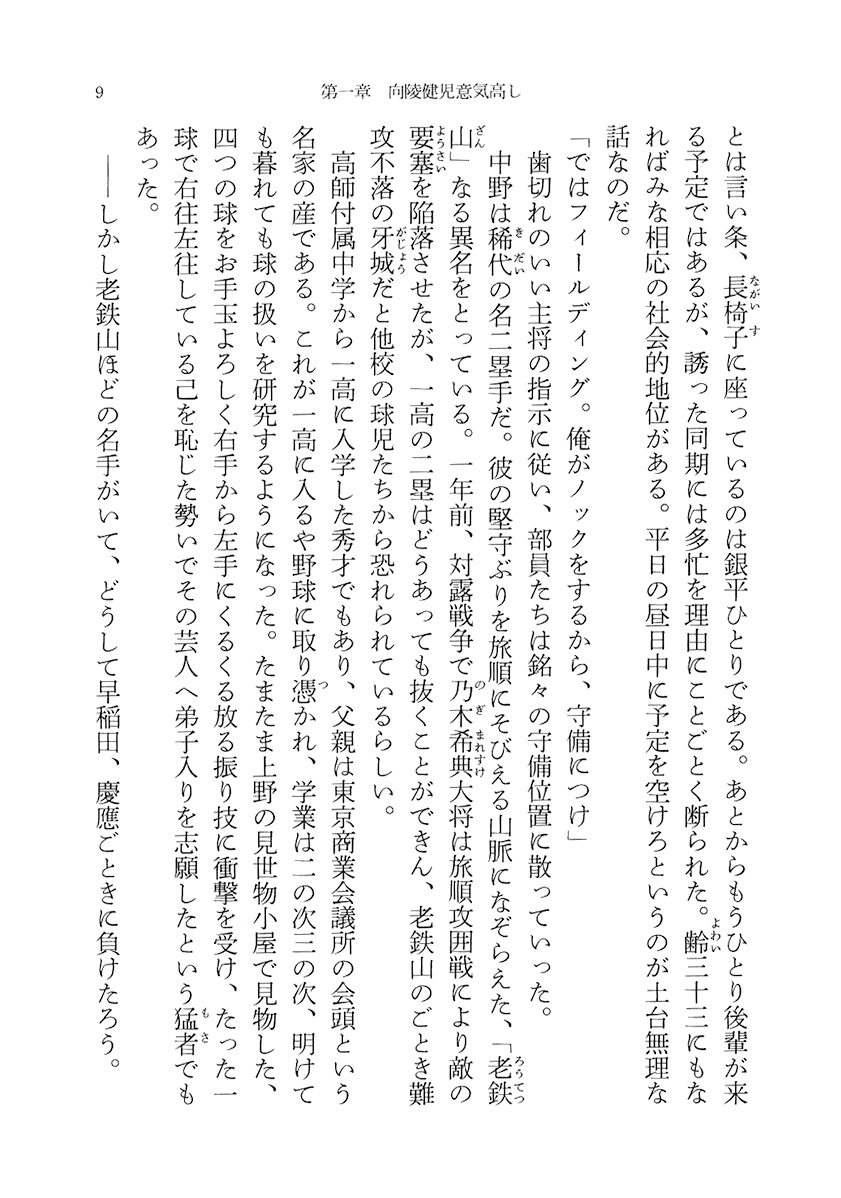 9
第一章　向陵健児意気高し
とは言い条、長椅子に座っているのは銀平ひとりである。あとからもうひとり後輩が来
る予定ではあるが、誘った同期には多忙を理由にことごとく断られた。齢三十三にもな
ればみな相応の社会的地位がある。平日の昼日中に予定を空けろというのが土台無理な
話なのだ。
「ではフィールディング。俺がノックをするから、守備につけ」
　歯切れのいい主将の指示に従い、部員たちは銘々の守備位置に散っていった。
　中野は稀代の名二塁手だ。彼の堅守ぶりを旅順にそびえる山脈になぞらえた、「老鉄
山」なる異名をとっている。一年前、対露戦争で乃木希典大将は旅順攻囲戦により敵の
要塞を陥落させたが、一高の二塁はどうあっても抜くことができん、老鉄山のごとき難
攻不落の牙城だと他校の球児たちから恐れられているらしい。
　高師付属中学から一高に入学した秀才でもあり、父親は東京商業会議所の会頭という
名家の産である。これが一高に入るや野球に取り憑かれ、学業は二の次三の次、明けて
も暮れても球の扱いを研究するようになった。たまたま上野の見世物小屋で見物した、
四つの球をお手玉よろしく右手から左手にくるくる放る振り技に衝撃を受け、たった一
球で右往左往している己を恥じた勢いでその芸人へ弟子入りを志願したという猛者でも
あった。
　――しかし老鉄山ほどの名手がいて、どうして早稲田、慶應ごときに負けたろう。